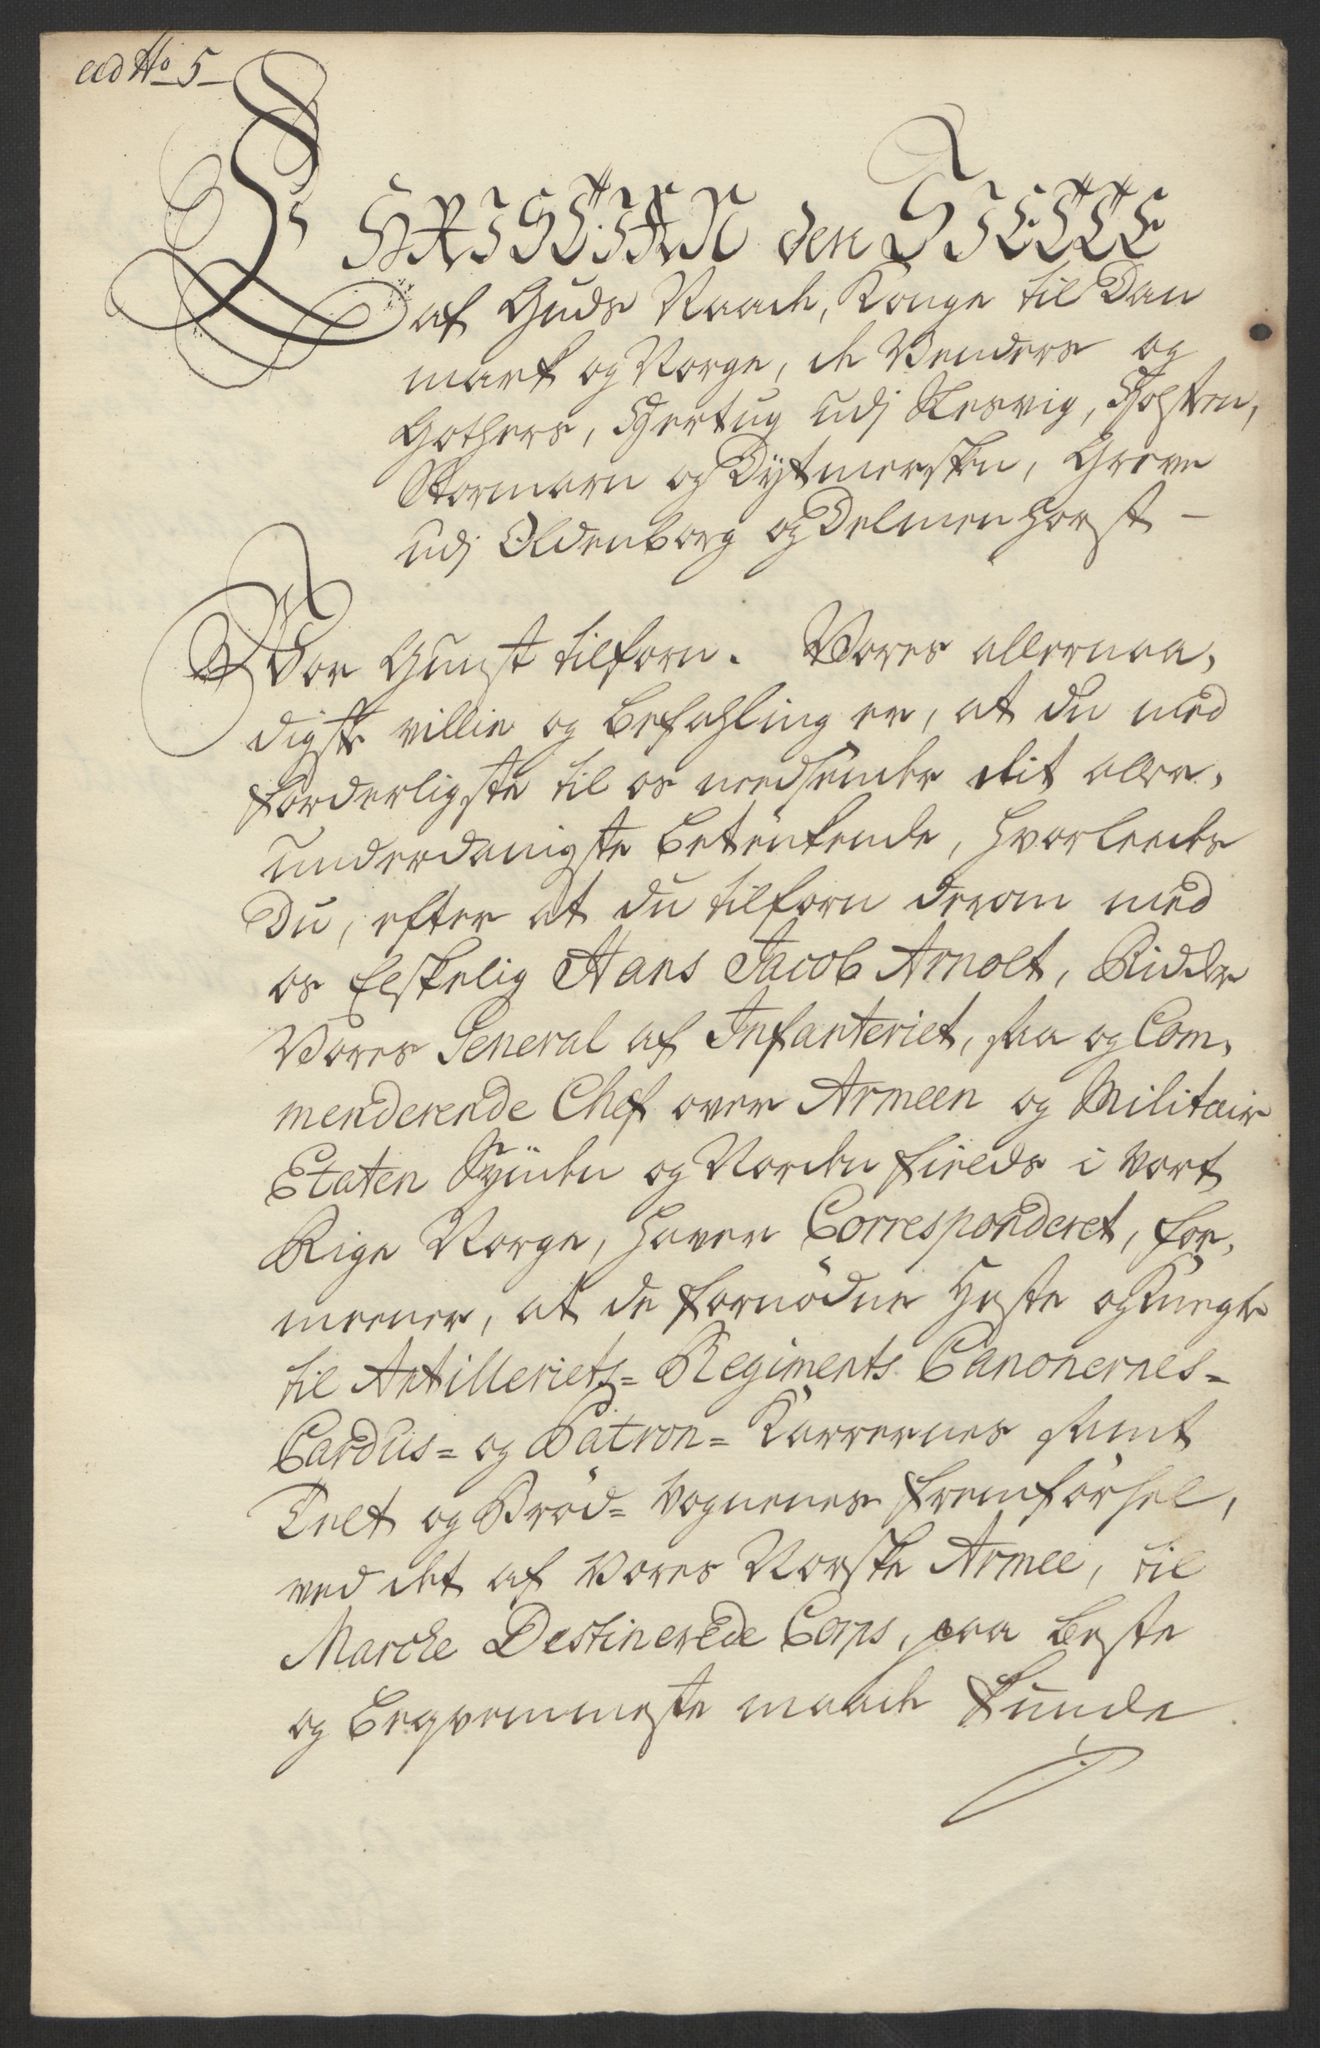 ad No 5
CHRISTIAN den SIETTE
af Guds Naade, Konge til Dan
mark og Norge, de Venders og
Gothers, Hertug udj Slesvig, Holsten,
Stormarn og Dytmersken, Greve
udj Oldenborg og Delmenhorst –
Vor Gunst tilforn. Vores allernaa,
digste villie og befahling er, at du med
forderligste til os nedsender dit aller,
underdanigste betenkende, hvorleedes
Du, efter at du tilforn derom med
os Elskelig Hans Jacob Arnolt, Ridder
Vores General af Infanteriet, saa og Com,
menderende Chef over Armeen og Militair
Etaten Synden og Norden fields i vort
Rige Norge, haver Corresponderet, for,
meener, at de fornødne Heste og Knegte
til Artilleriets= Regiments Canonernes-
Cardus= og Patron= Karrernes samt
Telt og Brød= Vognenes fremførsel,
ved det af Vores Norske Armee, til
Marche Destinerede Corps, paa beste
og beqvemmeste maade kunde